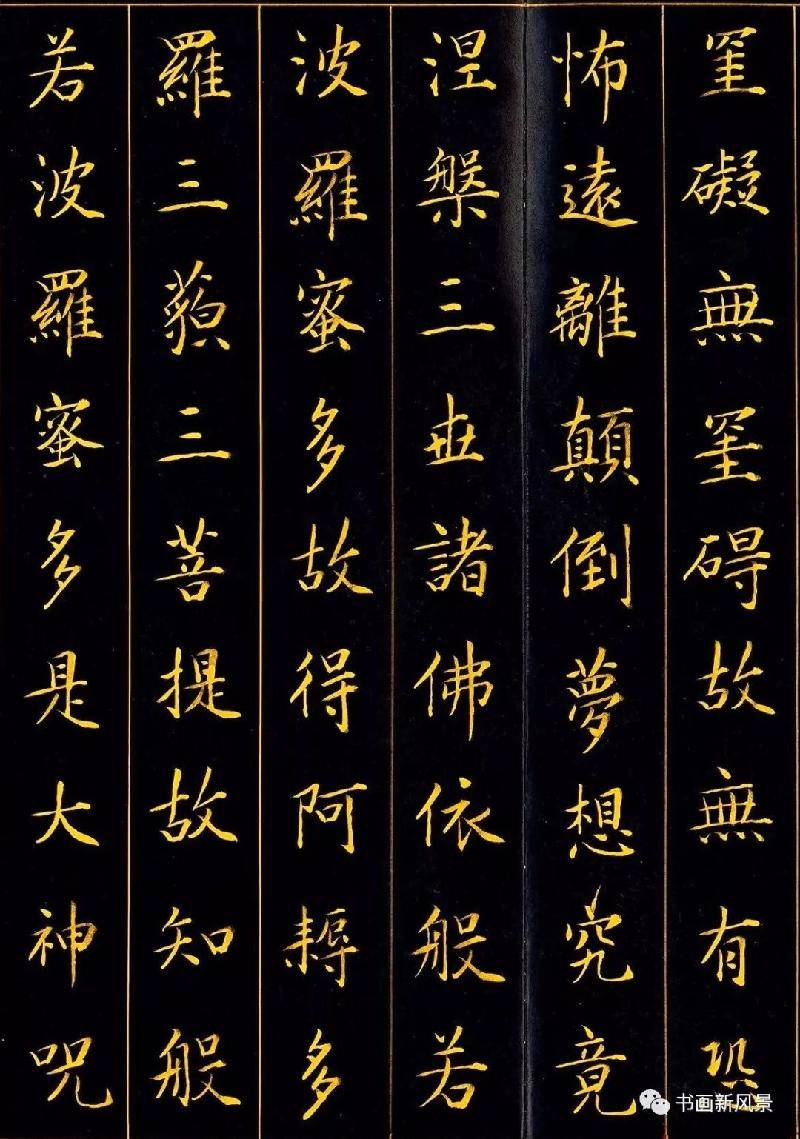 罣礙無罣碍故無有恐
怖遠離顛倒夢想究竟
涅槃三世諸佛依般若
波羅蜜多故得阿耨多
羅三藐三菩提故知般
若波羅蜜多是大神呪
书画新风景